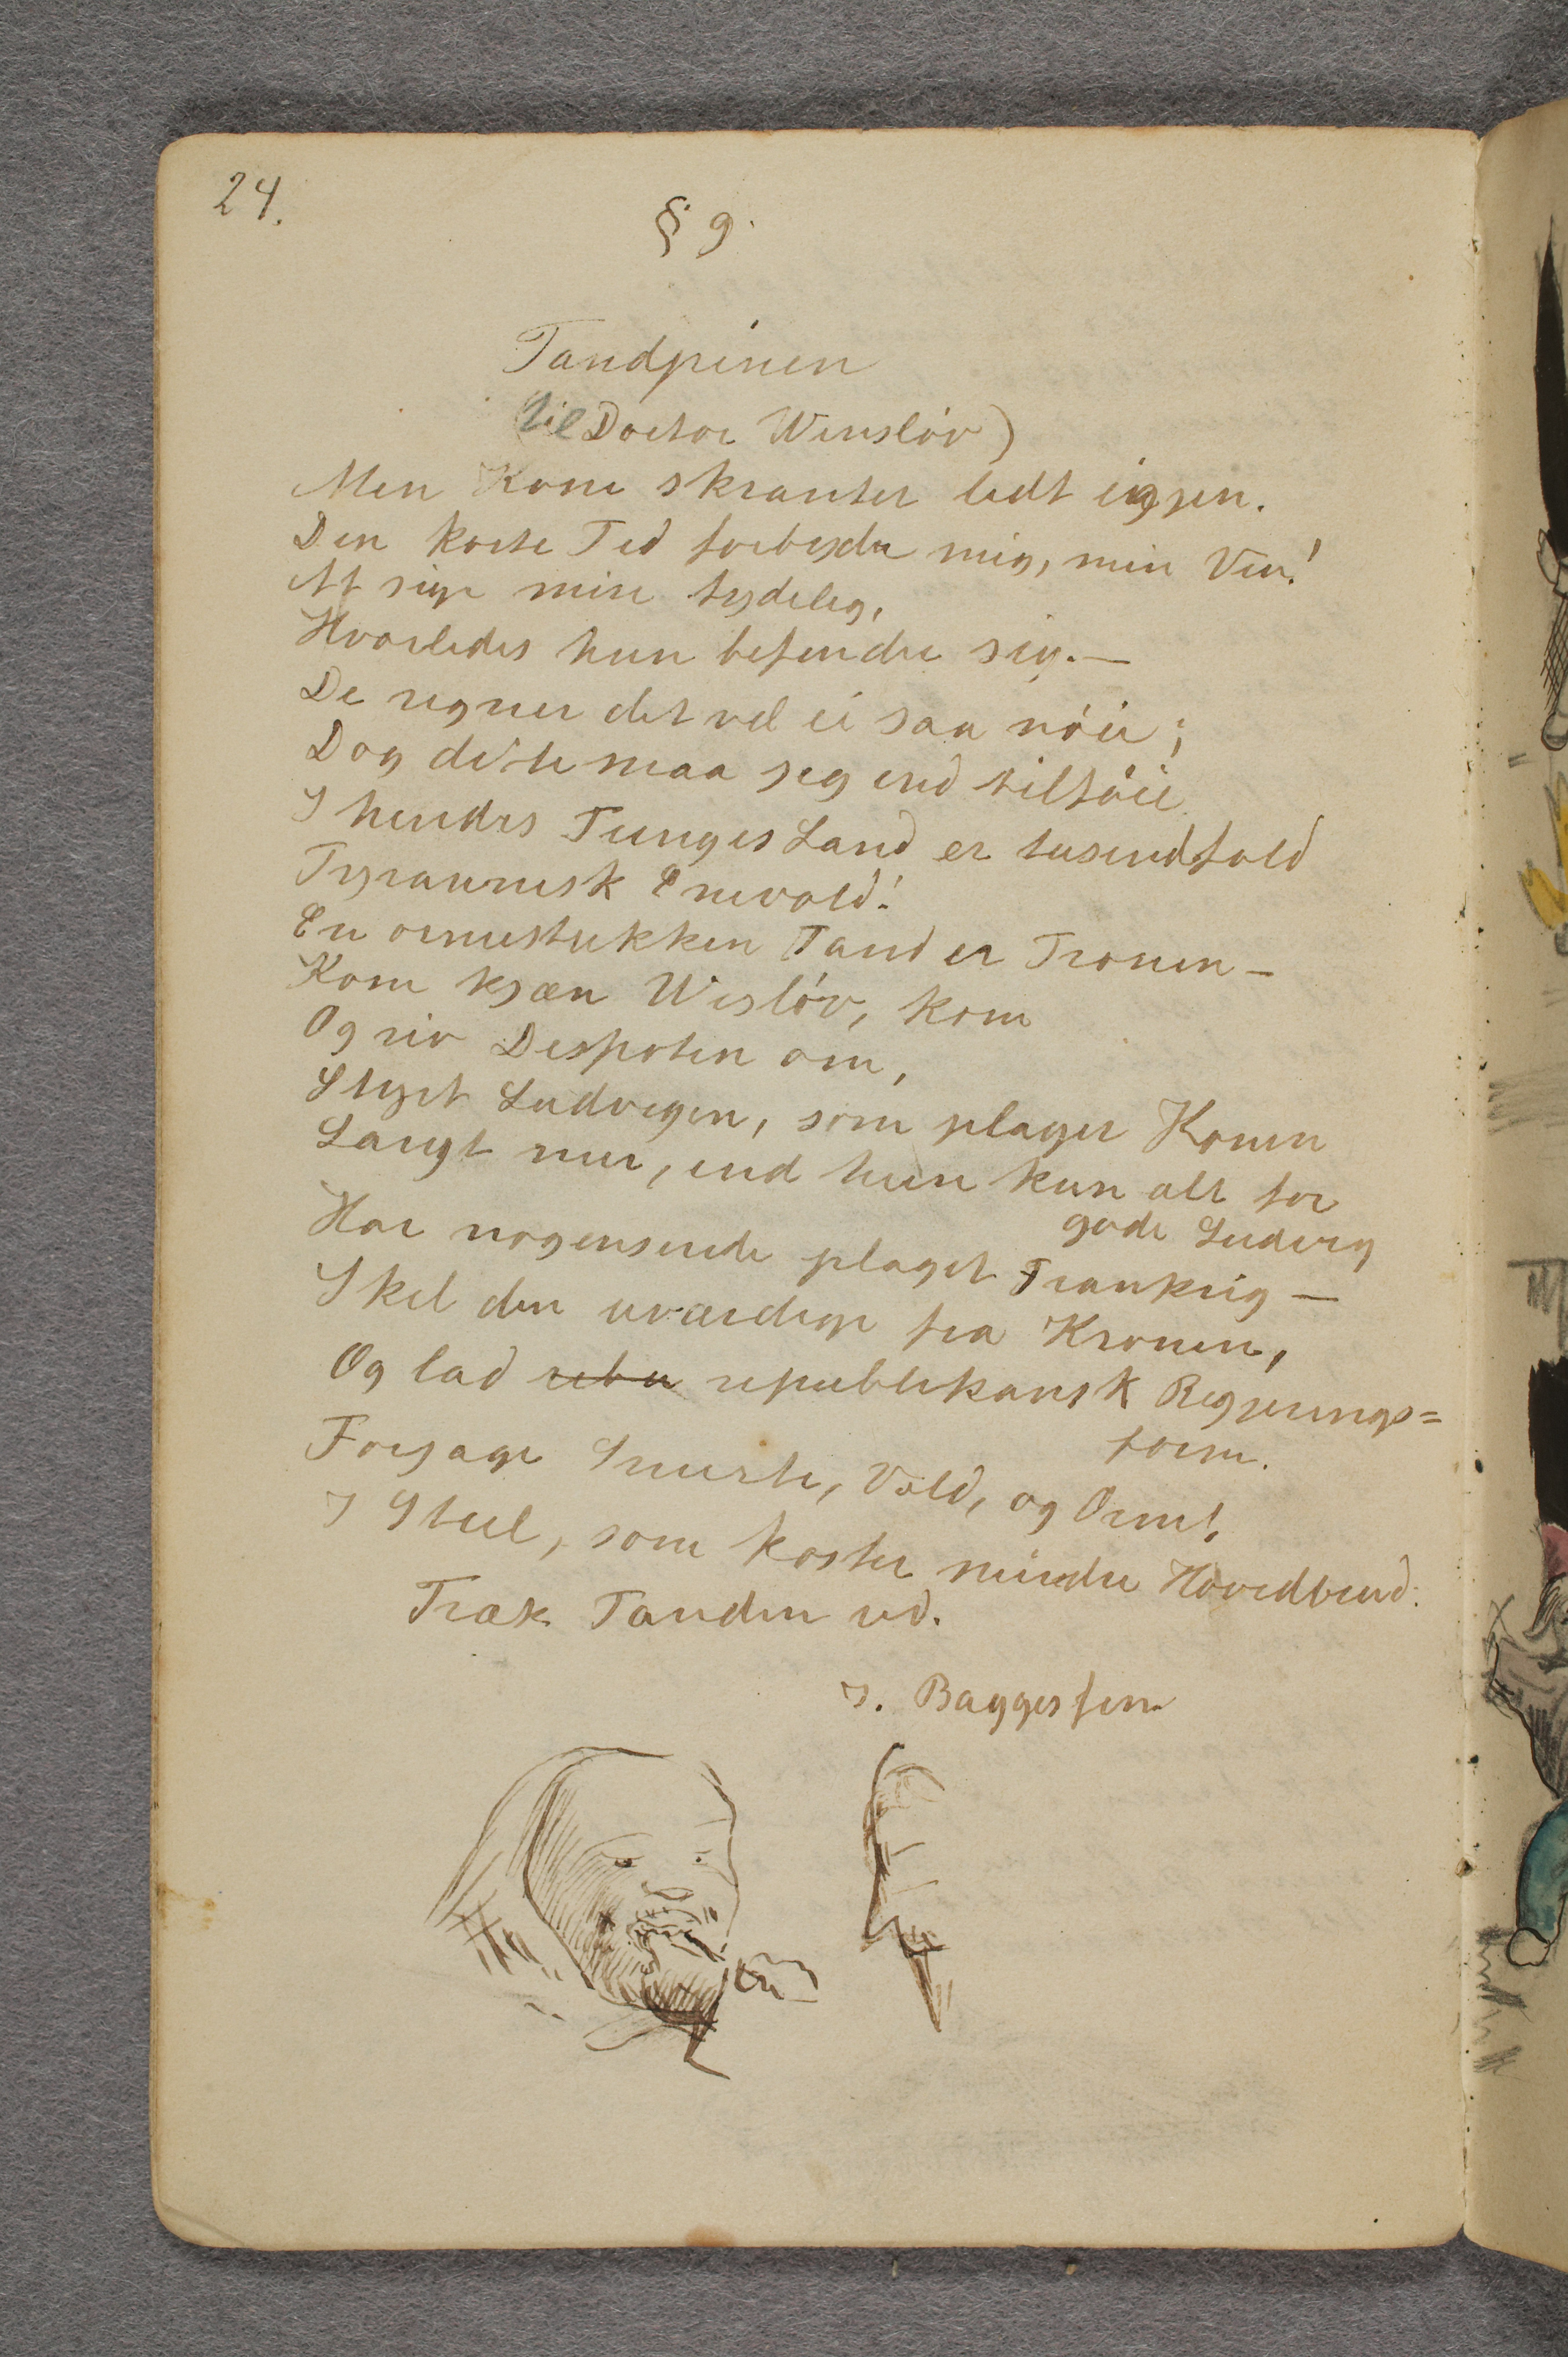 24.
§ 9.
Tandpinen
(til Doctor Winsløv)
Men Kone skranter lidt igjen.
Den korte Tid forbyder mig, min Ven!
At sige mere tydelig,
Hvorledes hun befinder sig. —
De regner det vel ei saa nøie;
Dog dette maa jeg end tilføie
I hendes Tunges Land er tusindfold
Tyrannisk Enevold!
En ormestukken Tand er Tronen —
Kom kjæn Wisløv, kom
Og riv Despoten om,
Styrt Ludvigen, som plager Konen
Langt mer, end hun kun alt for
gode Ludvig
Har nogensinde plaget Frankrig —
Skil den uværdige fra Kronen,
Og lad republikansk Regjerings=
form.
Forjage Smerte, Vold, og Orm!
I Stul, som koster mindre Hovedbrud:
Træk Tanden ud.
J. Baggesen